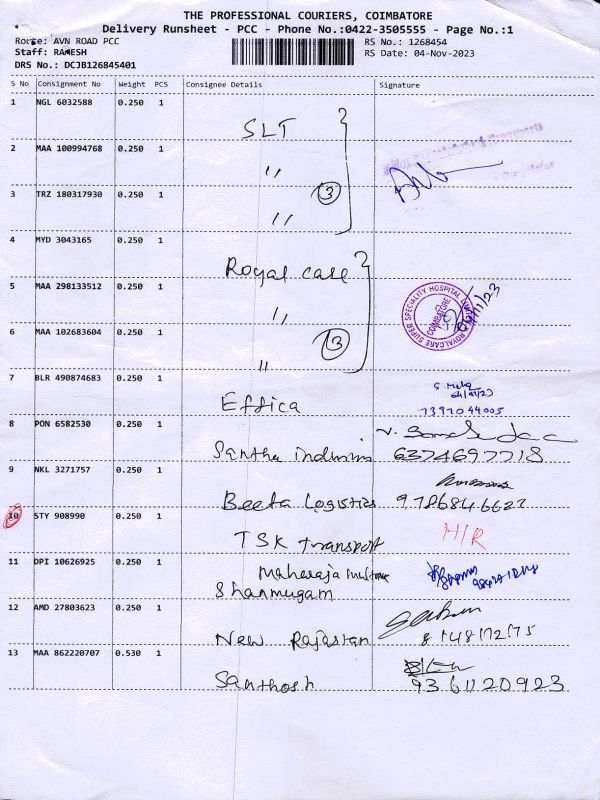 THE PROFESSIONAL COURIERS, COIMBATORE
Delivery Runsheet - PCC - Phone No.:0422-3505555 - Page No.:1
Route: AVN ROAD PCC
Staff: RAMESH
DRS No.: DCJB126845401
RS No.: 1268454
RS Date: 04-Nov-2023
S No Consignment No Weight PCS Consignee Details Signature
1 NGL 6032588 0.250 1 SLT
2 MAA 100994768 0.250 1 "
3 TRZ 180317930 0.250 1 " 3
4 MYD 3043165 0.250 1 Royal care
5 MAA 298133512 0.250 1 "
ROYALCARE SUPER SPECIALITY HOSPITAL
COIMBATORE
6 MAA 102683604 0.250 1 " 3
7 BLR 490874683 0.250 1 Effica
7397044005
8 PON 6582530 0.250 1 Santha industries 6374697718
9 NKL 3271757 0.250 1 Beeta Logistics 9786846627
10 STY 908990 0.250 1 TSK Transport H/R
11 DPI 10626925 0.250 1 Maharaja
Shanmugam
12 AMD 27803623 0.250 1 New Rajastan 8148172175
13 MAA 862220707 0.530 1 Santhosh 9361120923